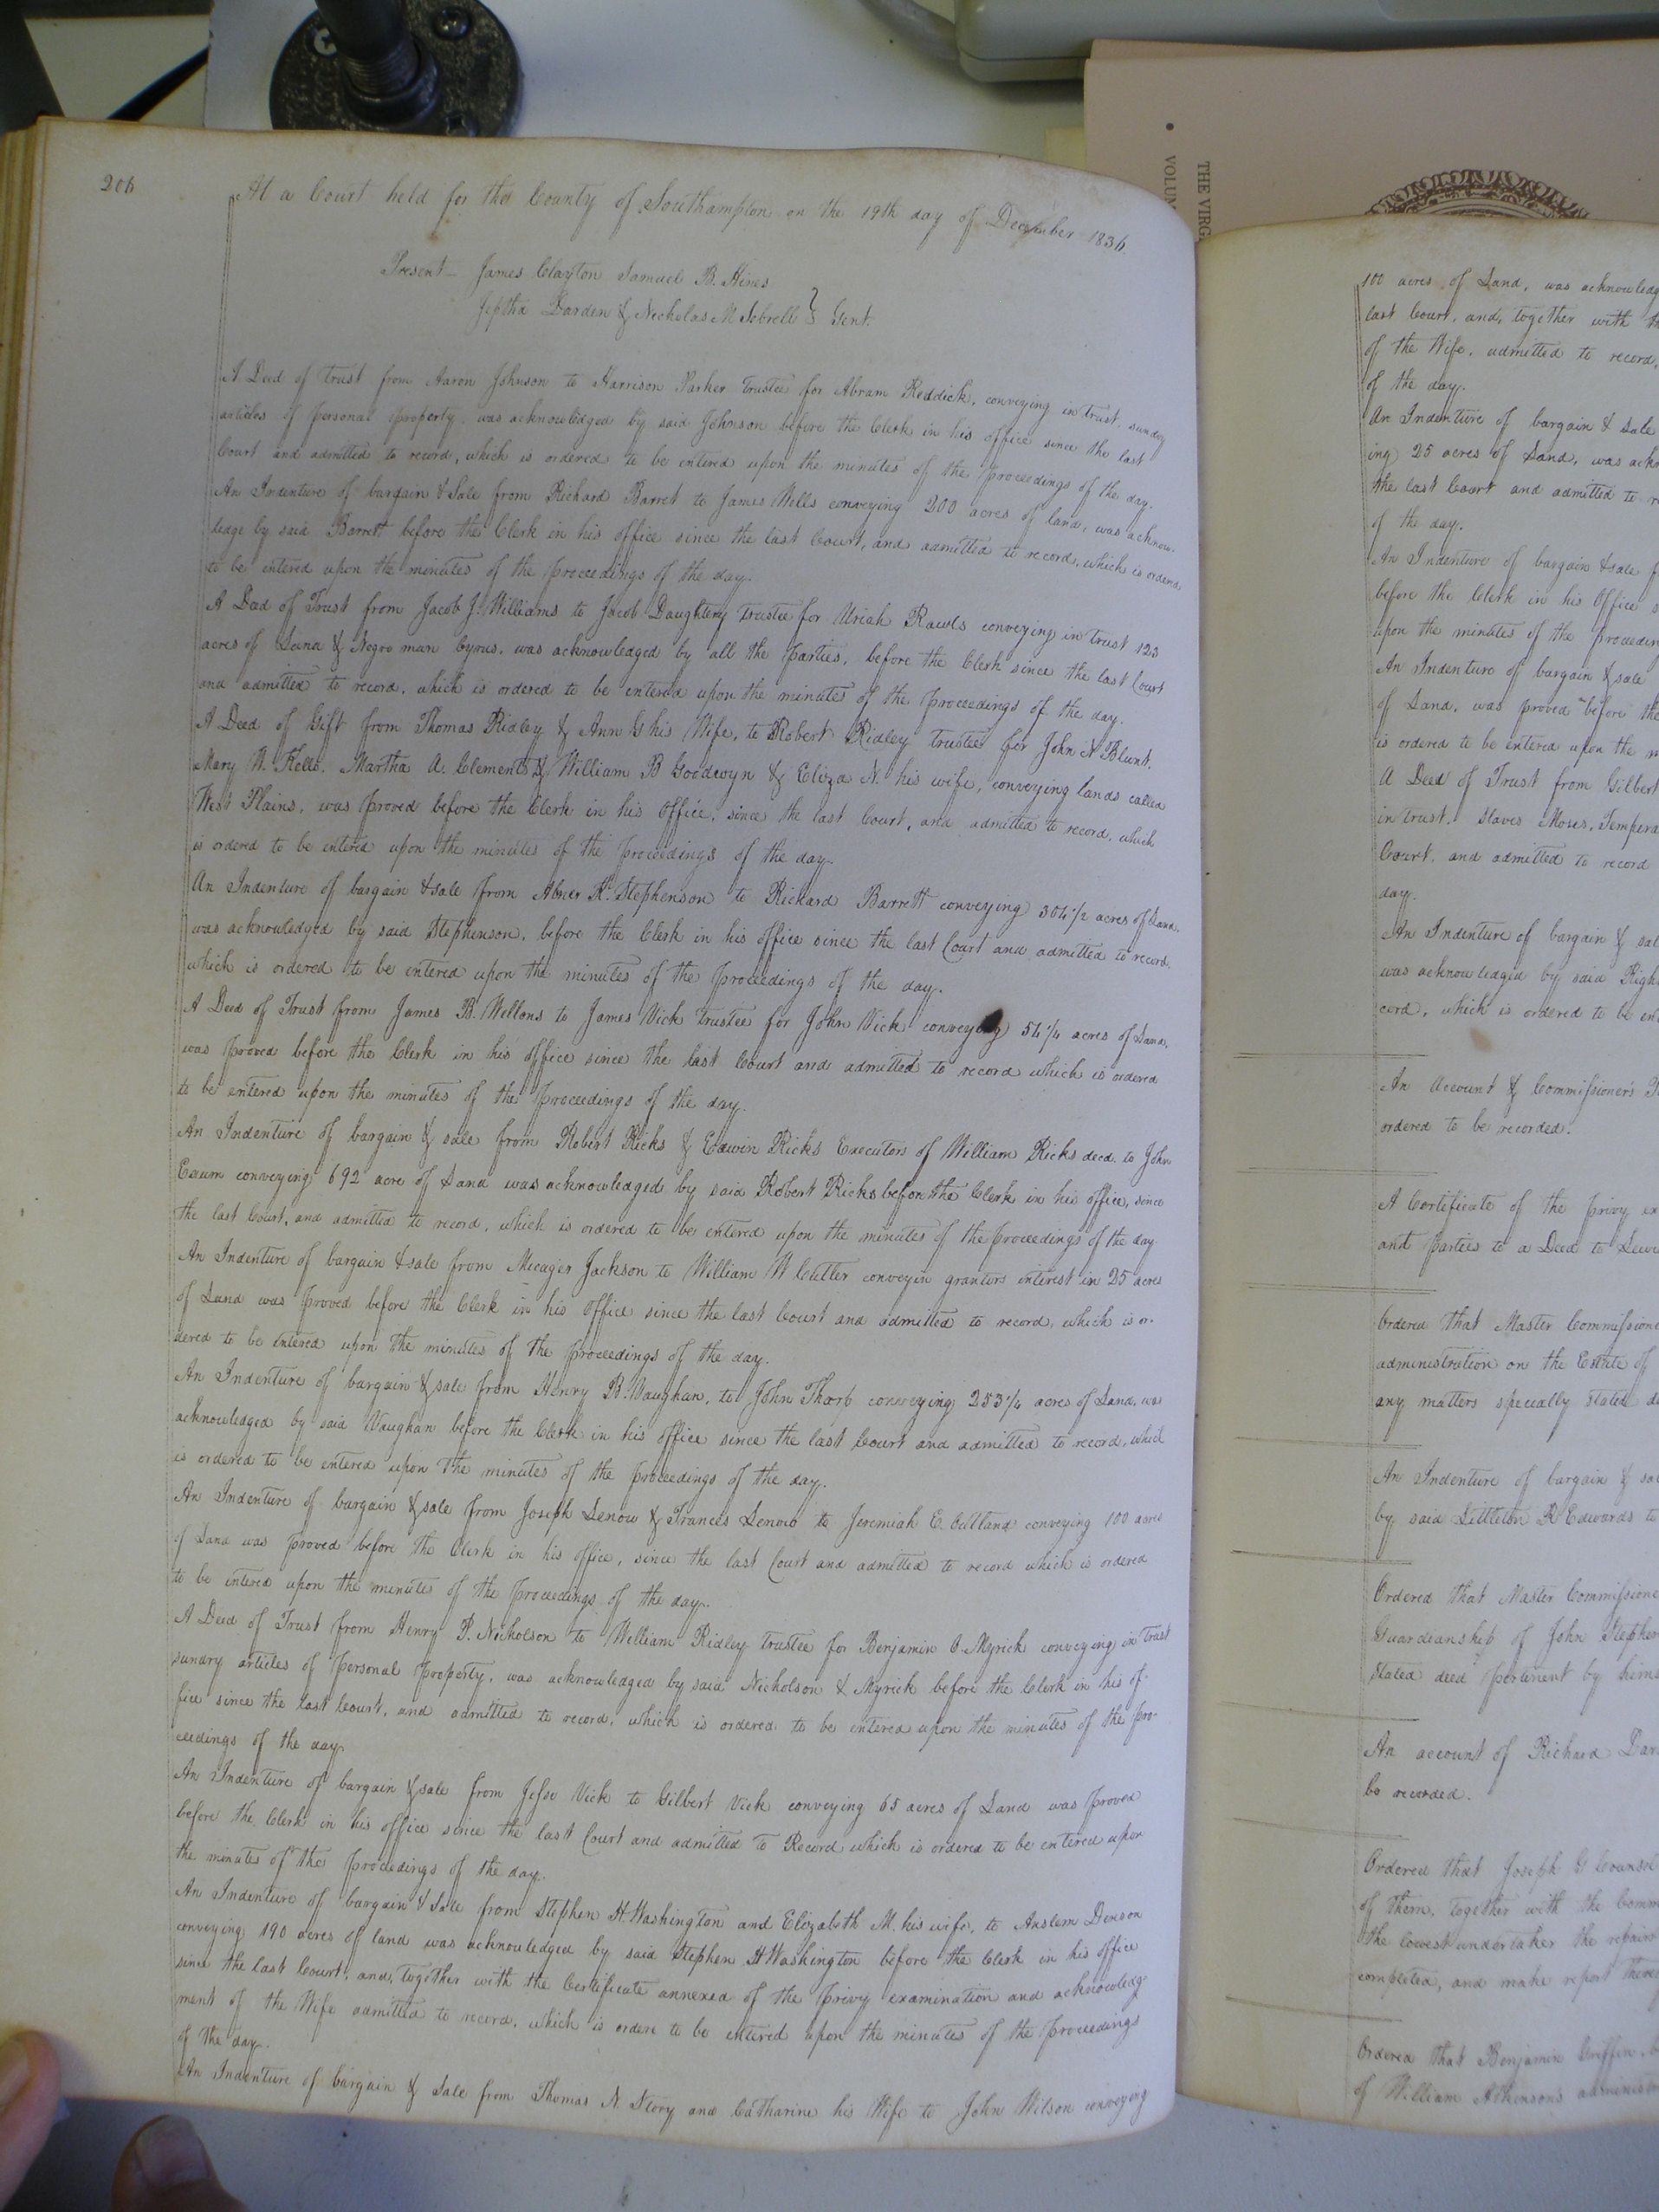 206
At a Court held for the County of Southampton on the 19th day of December 1836.
Present – James Clayton Samuel B. Hines
Jeptha Darden & Nicholas M Sebrell } Gent.
A Deed of trust from Aaron Johnson to Harrison Parker trustee for Abram Reddick, conveying in trust, sundry
articles of personal property, was acknowledged by said Johnson before the Clerk in his office since the last
Court and admitted to record, which is ordered to be entered upon the minutes of the proceedings of the day.
An Indenture of bargain & Sale from Richard Barret to James Wells conveying 200 acres of land, was acknow-
ledge by said Barrett before the Clerk in his office since the last Court, and admitted to record, which is ordered
to be entered upon the minutes of the proceedings of the day.
A Deed of Trust from Jacob J. Williams to Jacob Daughtery trustee for Uriah Rawls conveying in trust 123
acres of Land & Negro man Cyrus, was acknowledged by all the parties, before the Clerk since the last Court
and admitted to record, which is ordered to be entered upon the minutes of the proceedings of the day.
A Deed of Gift from Thomas Ridley & Ann G his Wife, to Robert Ridley trustee for John N Blunt,
Mary W. Kello, Martha A. Clements & William B Goodwyn & Eliza N. his wife, conveying lands called
West Plains, was proved before the Clerk in his Office, since the last Court, and admitted to record, which
is ordered to be entered upon the minutes of the proceedings of the day.
An Indenture of bargain & sale from Abner Stephenson to Richard Barrett conveying 304 1/2 acres of Land,
was acknowledged by said Stephenson, before the Clerk in his office since the last Court and admitted to record,
which is ordered to be entered upon the minutes of the proceedings of the day.
A Deed of Trust from James B. Wellons to James Vick trustee for John Vick conveying 54 1/4 acres of Land,
was proved before the Clerk in his office since the last Court and admitted to record which is ordered
to be entered upon the minutes of the proceedings of the day.
An Indenture of bargain & sale from Robert Ricks & Edwin Ricks Executors of William Ricks decd. to John
Exum conveying 692 acre of Land was acknowledged by said Robert Ricks before the Clerk in his office, since
the last Court, and admitted to record, which is ordered to be entered upon the minutes of the proceedings of the day
An Indenture of bargain & sale from Micager Jackson to William W Cutler conveyin grantors interest in 25 acres
of Land was proved before the Clerk in his office since the last Court and admitted to record, which is or-
dered to be entered upon the minutes of the proceedings of the day.
An Indenture of bargain & sale from Henry B. Vaughan, to John Thorp conveying 253 1/4 acres of Land, was
acknowledged by said Vaughan before the Clerk in his office since the last Court and admitted to record, which
is ordered to be entered upon the minutes of the proceedings of the day.
An Indenture of bargain & sale from Joseph Lenow & Frances Lenow to Jeremiah C. Outland conveying 100 acres
of Land was proved before the Clerk in his office, since the last Court and admitted to record which is ordered
to be entered upon the minutes of the proceedings of the day.
A Deed of Trust from Henry P. Nicholson to William Ridley trustee for Benjamin C. Myrick conveying in trust
sundry articles of personal property, was acknowledged by said Nicholson & Myrick before the Clerk in his of-
fice since the last Court, and admitted to record, which is ordered to be entered upon the minutes of the pro-
ceedings of the day
An Indenture of bargain & sale from Jesse Vick to Gilbert Vick conveying 65 acres of Land was proved
before the Clerk in his office since the last Court and admitted to Record which is ordered to be entered upon
the minutes of the proceedings of the day.
An Indenture of bargain & Sale from Stephen H. Washington and Elizabeth M. his wife, to Anslem Denson
conveying 190 acres of land was acknowledged by said Stephen H Washington before the Clerk in his office
since the last Court, and, together with the Certificate annexed of the privy examination and acknowledg-
ment of the Wife admitted to record, which is ordere to be entered upon the minutes of the proceedings
of the day.
An Indenture of bargain & Sale from Thomas N. Story and Catharine his Wife to John Wilson conveying
THE VIRG
VOLUM
100 acres of Land, was acknowledg
last Court, and, together with th
of the Wife, admitted to record,
of the day.
An Indenture of bargain & Sale
ing 25 acres of Land, was ackn
the last Court and admitted to r
of the day.
An Indenture of bargain & sale f
before the Clerk in his Office s
upon the minutes of the proceedin
An Indenture of bargain & sale
of Land, was proved before the
is ordered to be entered upon the m
A Deed of Trust from Gilbert
in trust, Slaves Moses, Tempera
Court, and admitted to record
day.
An Indenture of bargain & sal
was acknowledged by said Righ
cord, which is ordered to be en
An Account & Commissioner's R
ordered to be recorded.
A Certificate of the privy ex
and parties to a Deed to Lewi
Ordered that Master Commissione
administration on the Estate of
any matters specially stated de
An Indenture of bargain & sal
by said Littleton R Edwards to
Ordered that Master Commissione
Guardianship of John Stephen
stated deed pertinent by hims
An account of Richard Dar
be recorded.
Ordered that Joseph G Counsel
of them, together with the Comm
the lowest undertaker the repairs
completed, and make report there
Ordered that Benjamin Griffin,
of William Atkinson's administra